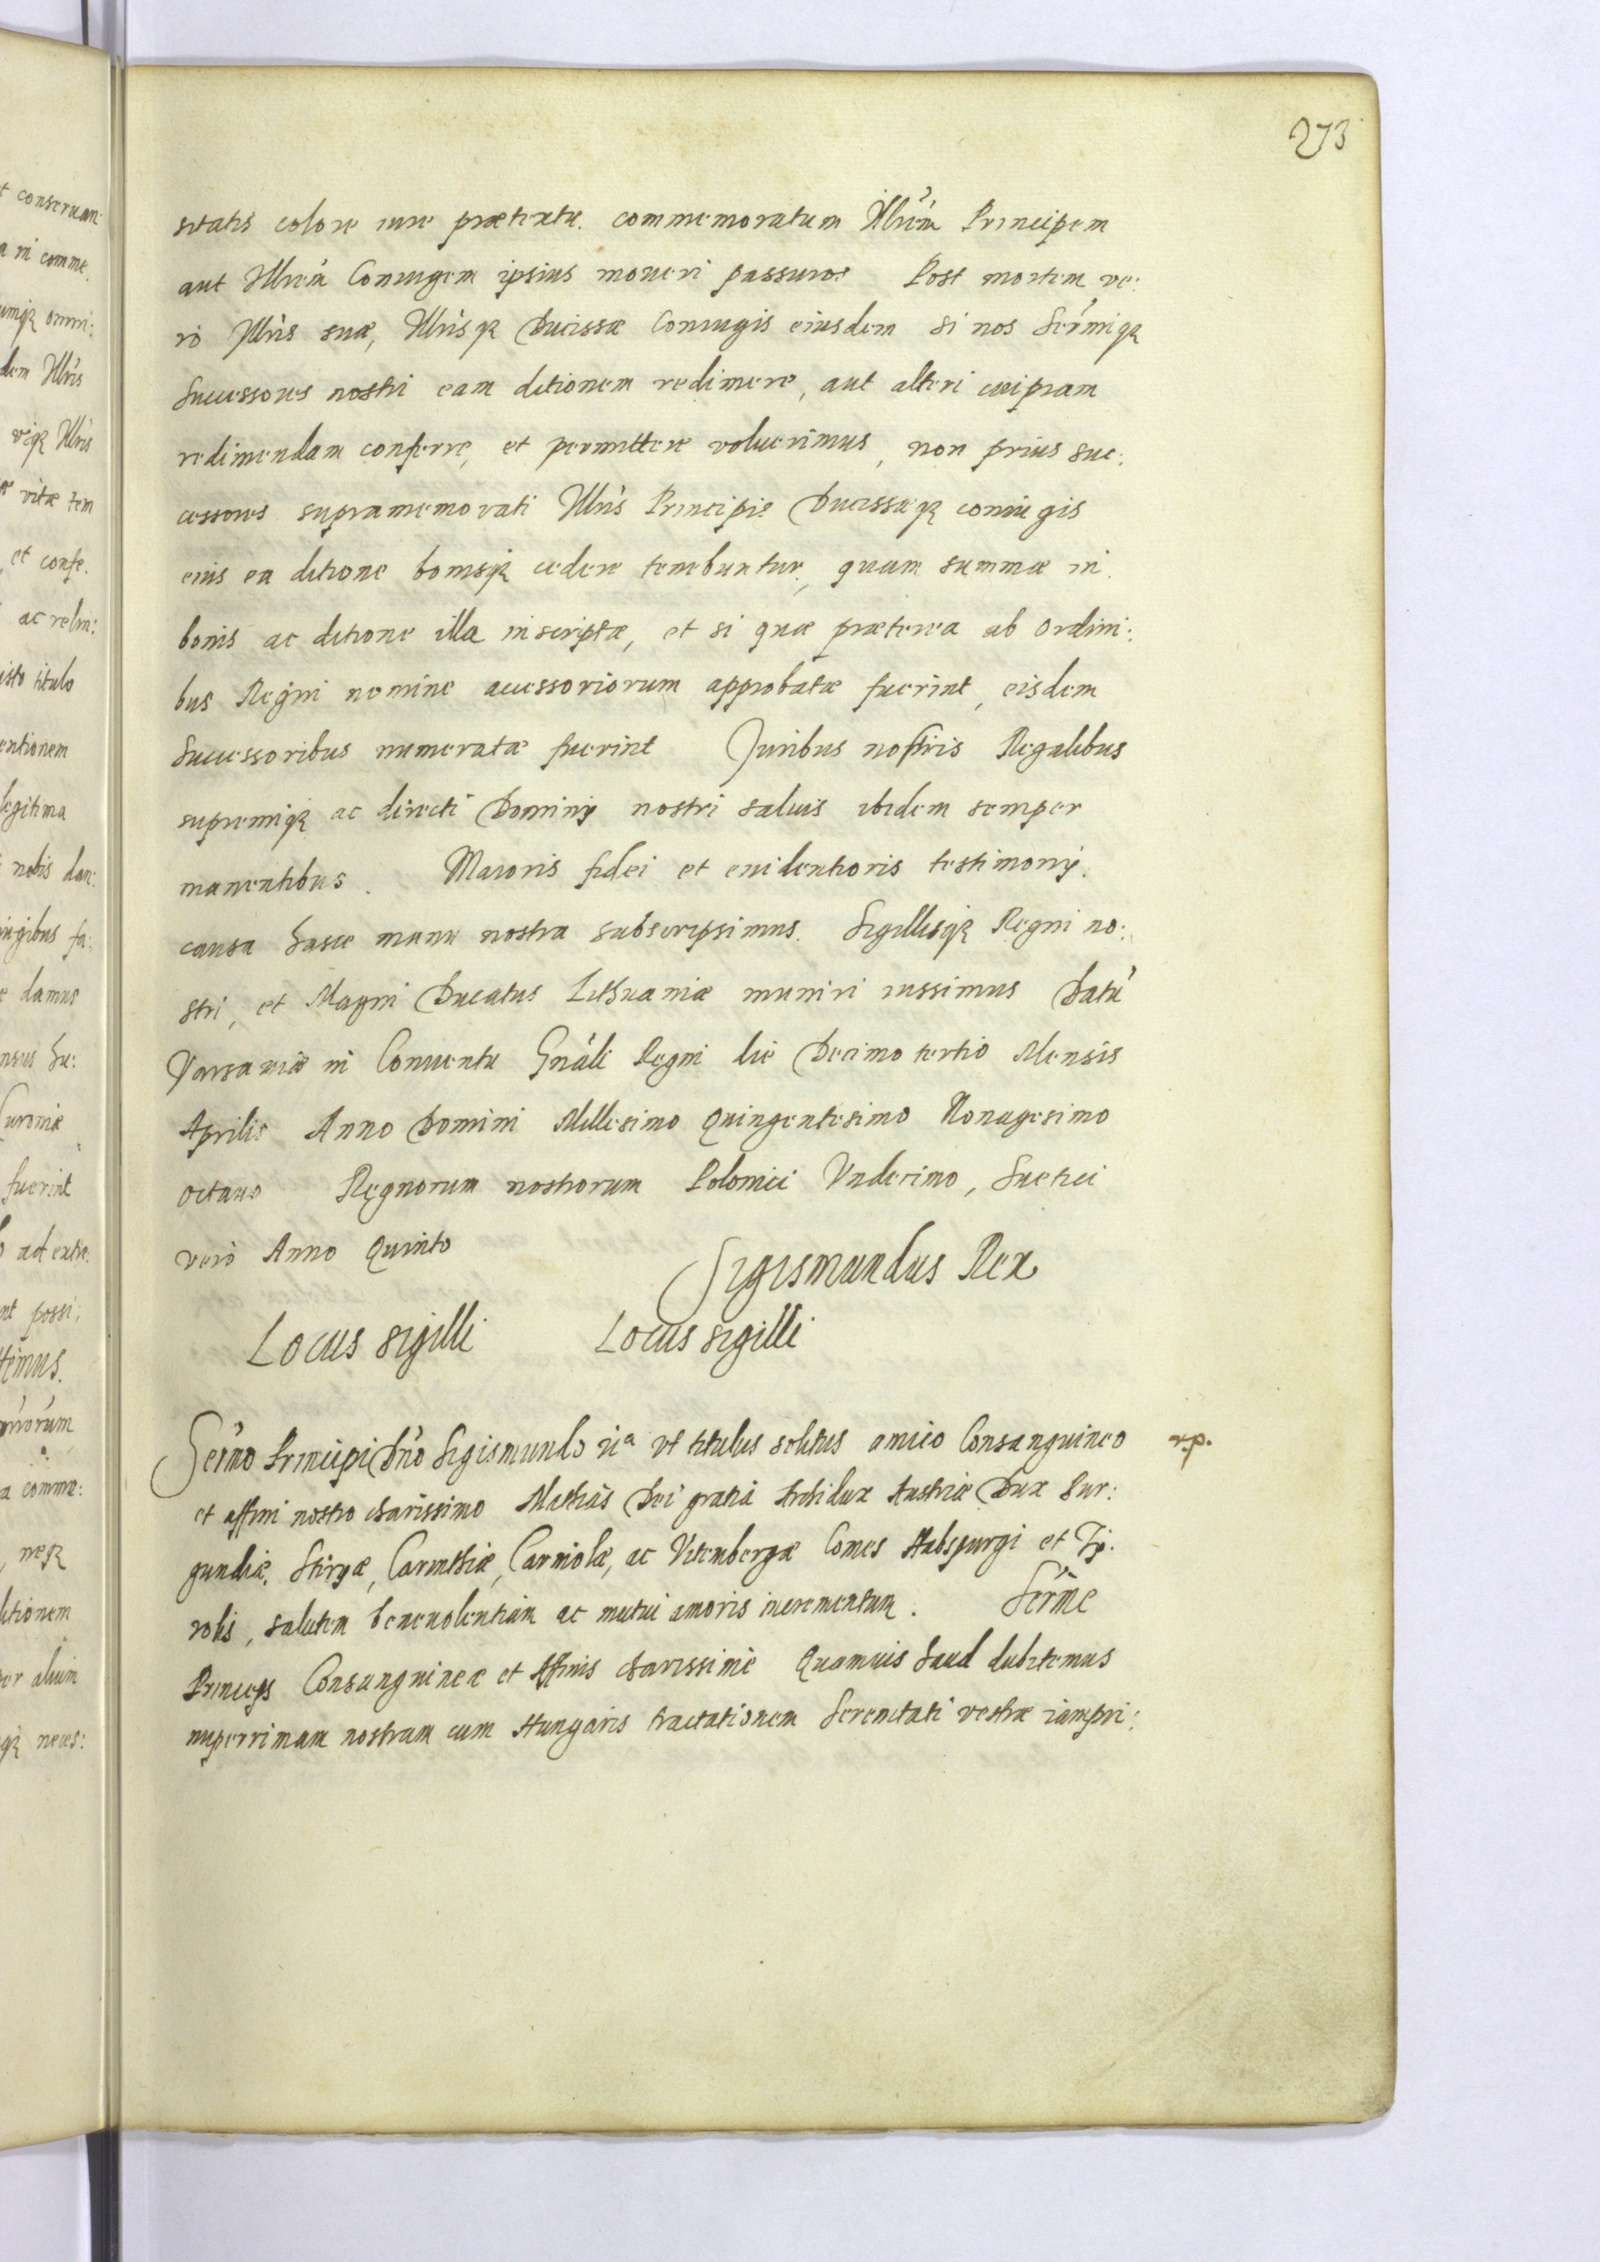 273
sitatis colore iure prætextu. commemoratum Illr̃em Principem
aut Illrem̃ Coniugem ipsius moueri passuros Post mortem ve:
ro Illris̃ suæ, Illris̃qꝫ Ducissæ Coniugis eiusdem si nos Serm̃iqꝫ
Successores nostri eam ditionem redimere, aut alteri cuipiam
redimendam conferre, et permittere voluerimus, non prius suc:
cessores supramemorati Illris̃ Principis Ducissæqꝫ coniugis
eius ea ditione bonisqꝫ cedere tenebuntur, quam summæ in
bonis ac ditione illa inscriptæ, et si quæ præterea ab ordini:
bus Regni nomine accessoriorum approbatæ fuerint, eisdem
Successoribus numeratæ fuerint Juribus nostris Regalibus
supremiqꝫ ac directi Dominij nostri saluis ibidem semper
manentibus. Maioris fidei et euidentioris testimonij
causa hasce manu nostra subscripsimus. Sigillisqꝫ Regni no:
stri, et Magni Ducatus Lithuaniæ muniri iussimus Datũ
Varsauiæ in Conuentu Gnãli Regni die Decimo tertio Mensis
Aprilis Anno Domini Millesimo Quingentesimo Nonagesimo
octauo Regnorum nostrorum Polonici Vndecimo, Suetici
vero Anno Quinto
Sigismundus Rex
Locus sigilli Locus sigilli
Serm̃o Principi Dñо Sigismundo iiia vt titulus solitus amico Consanguineo
r.p.
et affini nostro charissimo Mathias Dei gratia Archidux Austriæ Dux Bur:
gundiæ, Stiryæ, Carinthiæ, Carniolæ, ac Vitembergæ Comes Habspurgi et Ty:
rolis, salutem beneuolentiam ac mutui amoris incrementum. Serm̃e
Princeps Consanguineæ et Affinis charissime Quamuis haud dubitemus
nuperrimam nostram cum Hungaris tractationem Serenitati vestræ iampri: